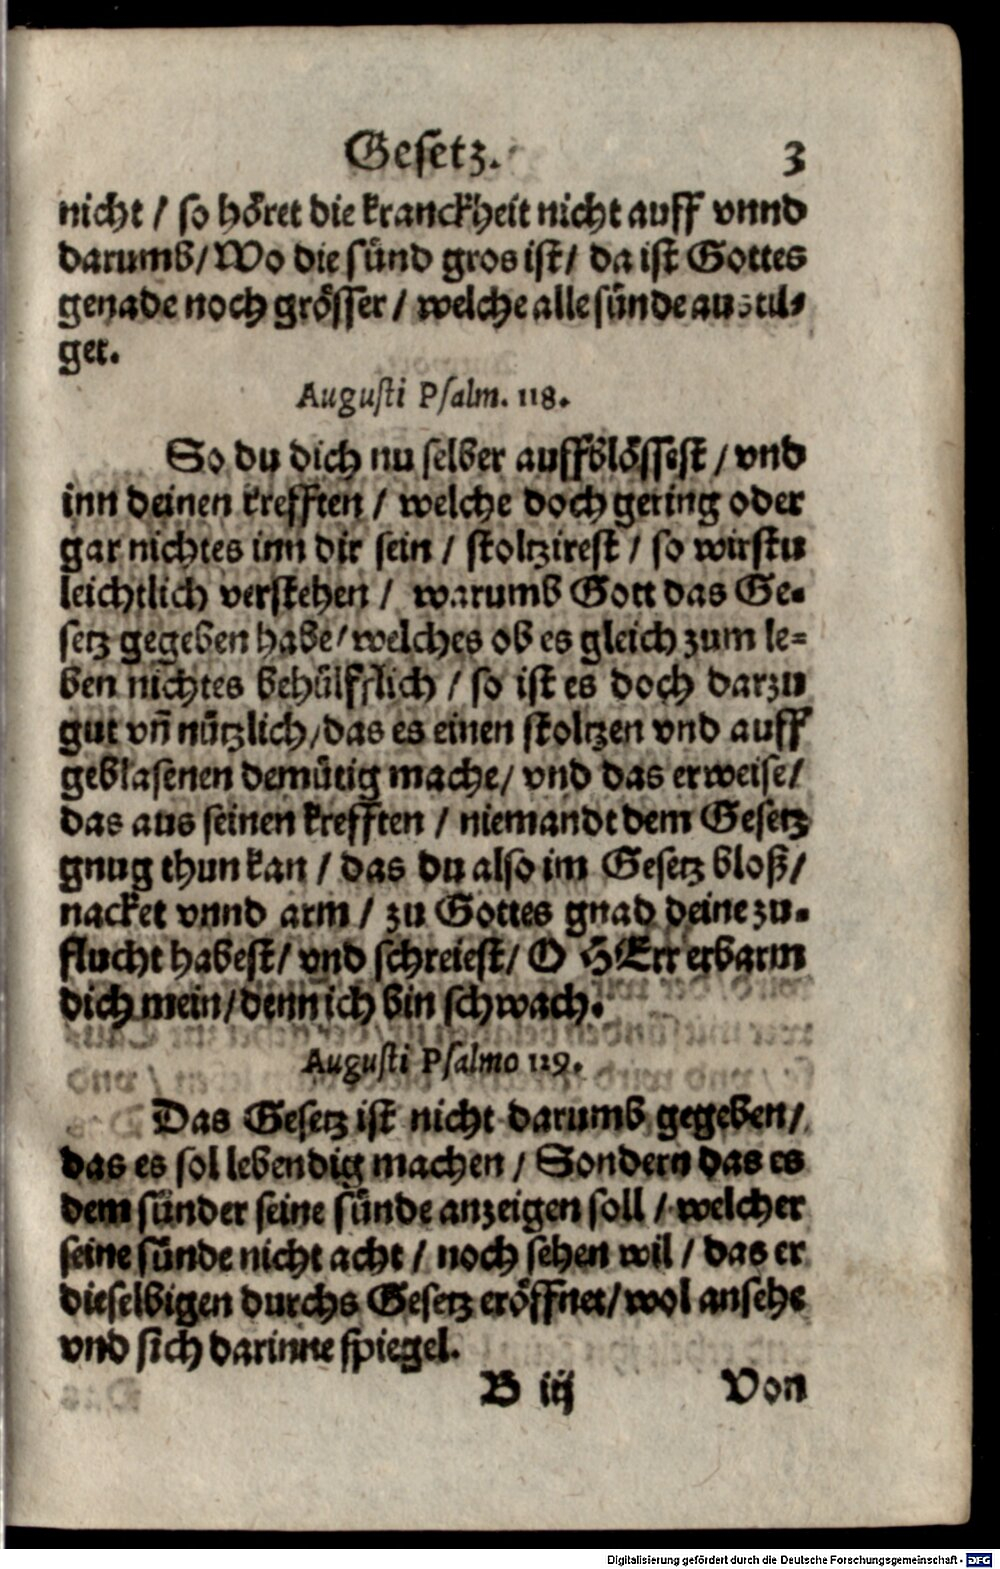 Gesetz. 3
nicht / so höret die kranckheit nicht auff vnnd
darumb / Wo die sünd gros ist / da ist Gottes
genade noch grösser / welche alle sünde austil-
get.
Augusti Psalm. 118.
So du dich nu selber auffblössest / vnd
inn deinen krefften / welche doch gering oder
gar nichtes inn dir sein / stoltzirest / so wirstu
leichtlich verstehen / warumb Gott das Ge-
setz gegeben habe / welches ob es gleich zum le=
ben nichtes behülfflich / so ist es doch darzu
gut vñ nützlich / das es einen stoltzen vnd auff
geblasenen demütig mache / vnd das erweise /
das aus seinen krefften / niemandt dem Gesetz
gnug thun kan / das du also im Gesetz bloß /
nacket vnnd arm / zu Gottes gnad deine zu-
flucht habest / vnd schreiest / O HErr erbarm
dich mein / denn ich bin schwach.
Augusti Psalmo 119.
Das Gesetz ist nicht darumb gegeben /
das es sol lebendig machen / Sondern das es
dem sünder seine sünde anzeigen soll / welcher
seine sünde nicht acht / noch sehen wil / das er
dieselbigen durchs Gesetz eröffnet / wol ansehe
vnd sich darinne spiegel.
B iij Von
Digitalisierung gefördert durch die Deutsche Forschungsgemeinschaft - DFG